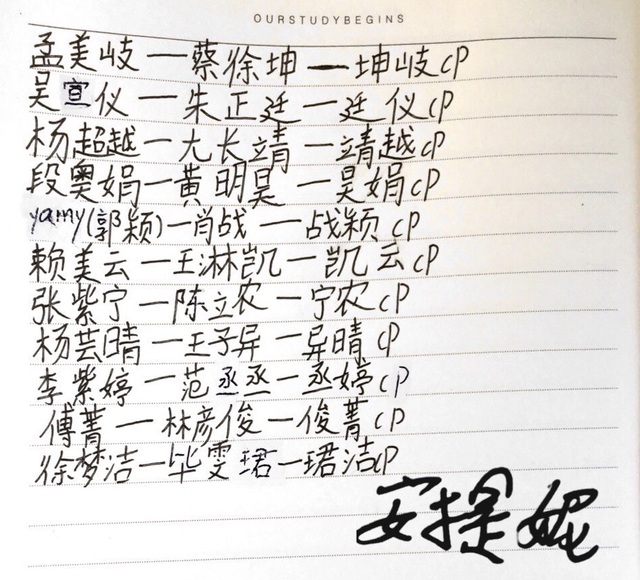 OURSTUDYBEGINS
孟美岐一蔡徐坤一坤岐cp
吴宣仪一朱正廷一廷仪cp
杨超越一尤长靖一靖越cp
段奥娟一黄明昊一昊娟cp
yamy(郭颖)一肖战一战颖cp
赖美云一王淋凯一凯云cp
张紫宁一陈立农一宁农cp
杨芸晴一王子异一异晴cp
李紫婷一范丞丞一丞婷cp
傅菁一林彦俊一俊菁cp
徐梦洁一毕雯珺一珺洁cp
安提妮